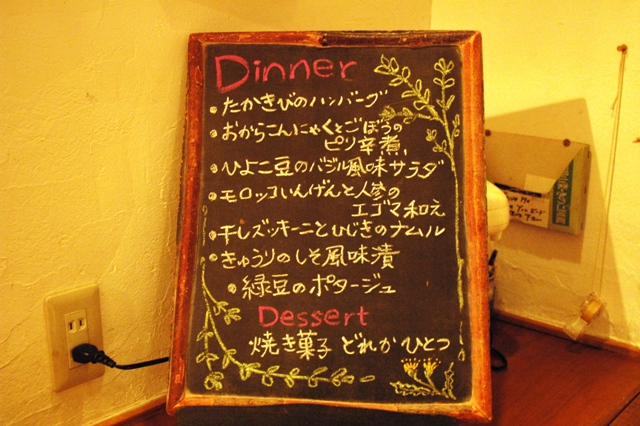 Dinner
・たかきびのハンバーグ
・おからこんにゃくとごぼうの
ピリ辛煮
・ひよこ豆のバジル風味サラダ
・モロッコいんげんと人参の
エゴマ和え
・干しズッキーニとひじきのナムル
・きゅうりのしそ風味漬
・緑豆のポタージュ
Dessert
焼き菓子 どれかひとつ